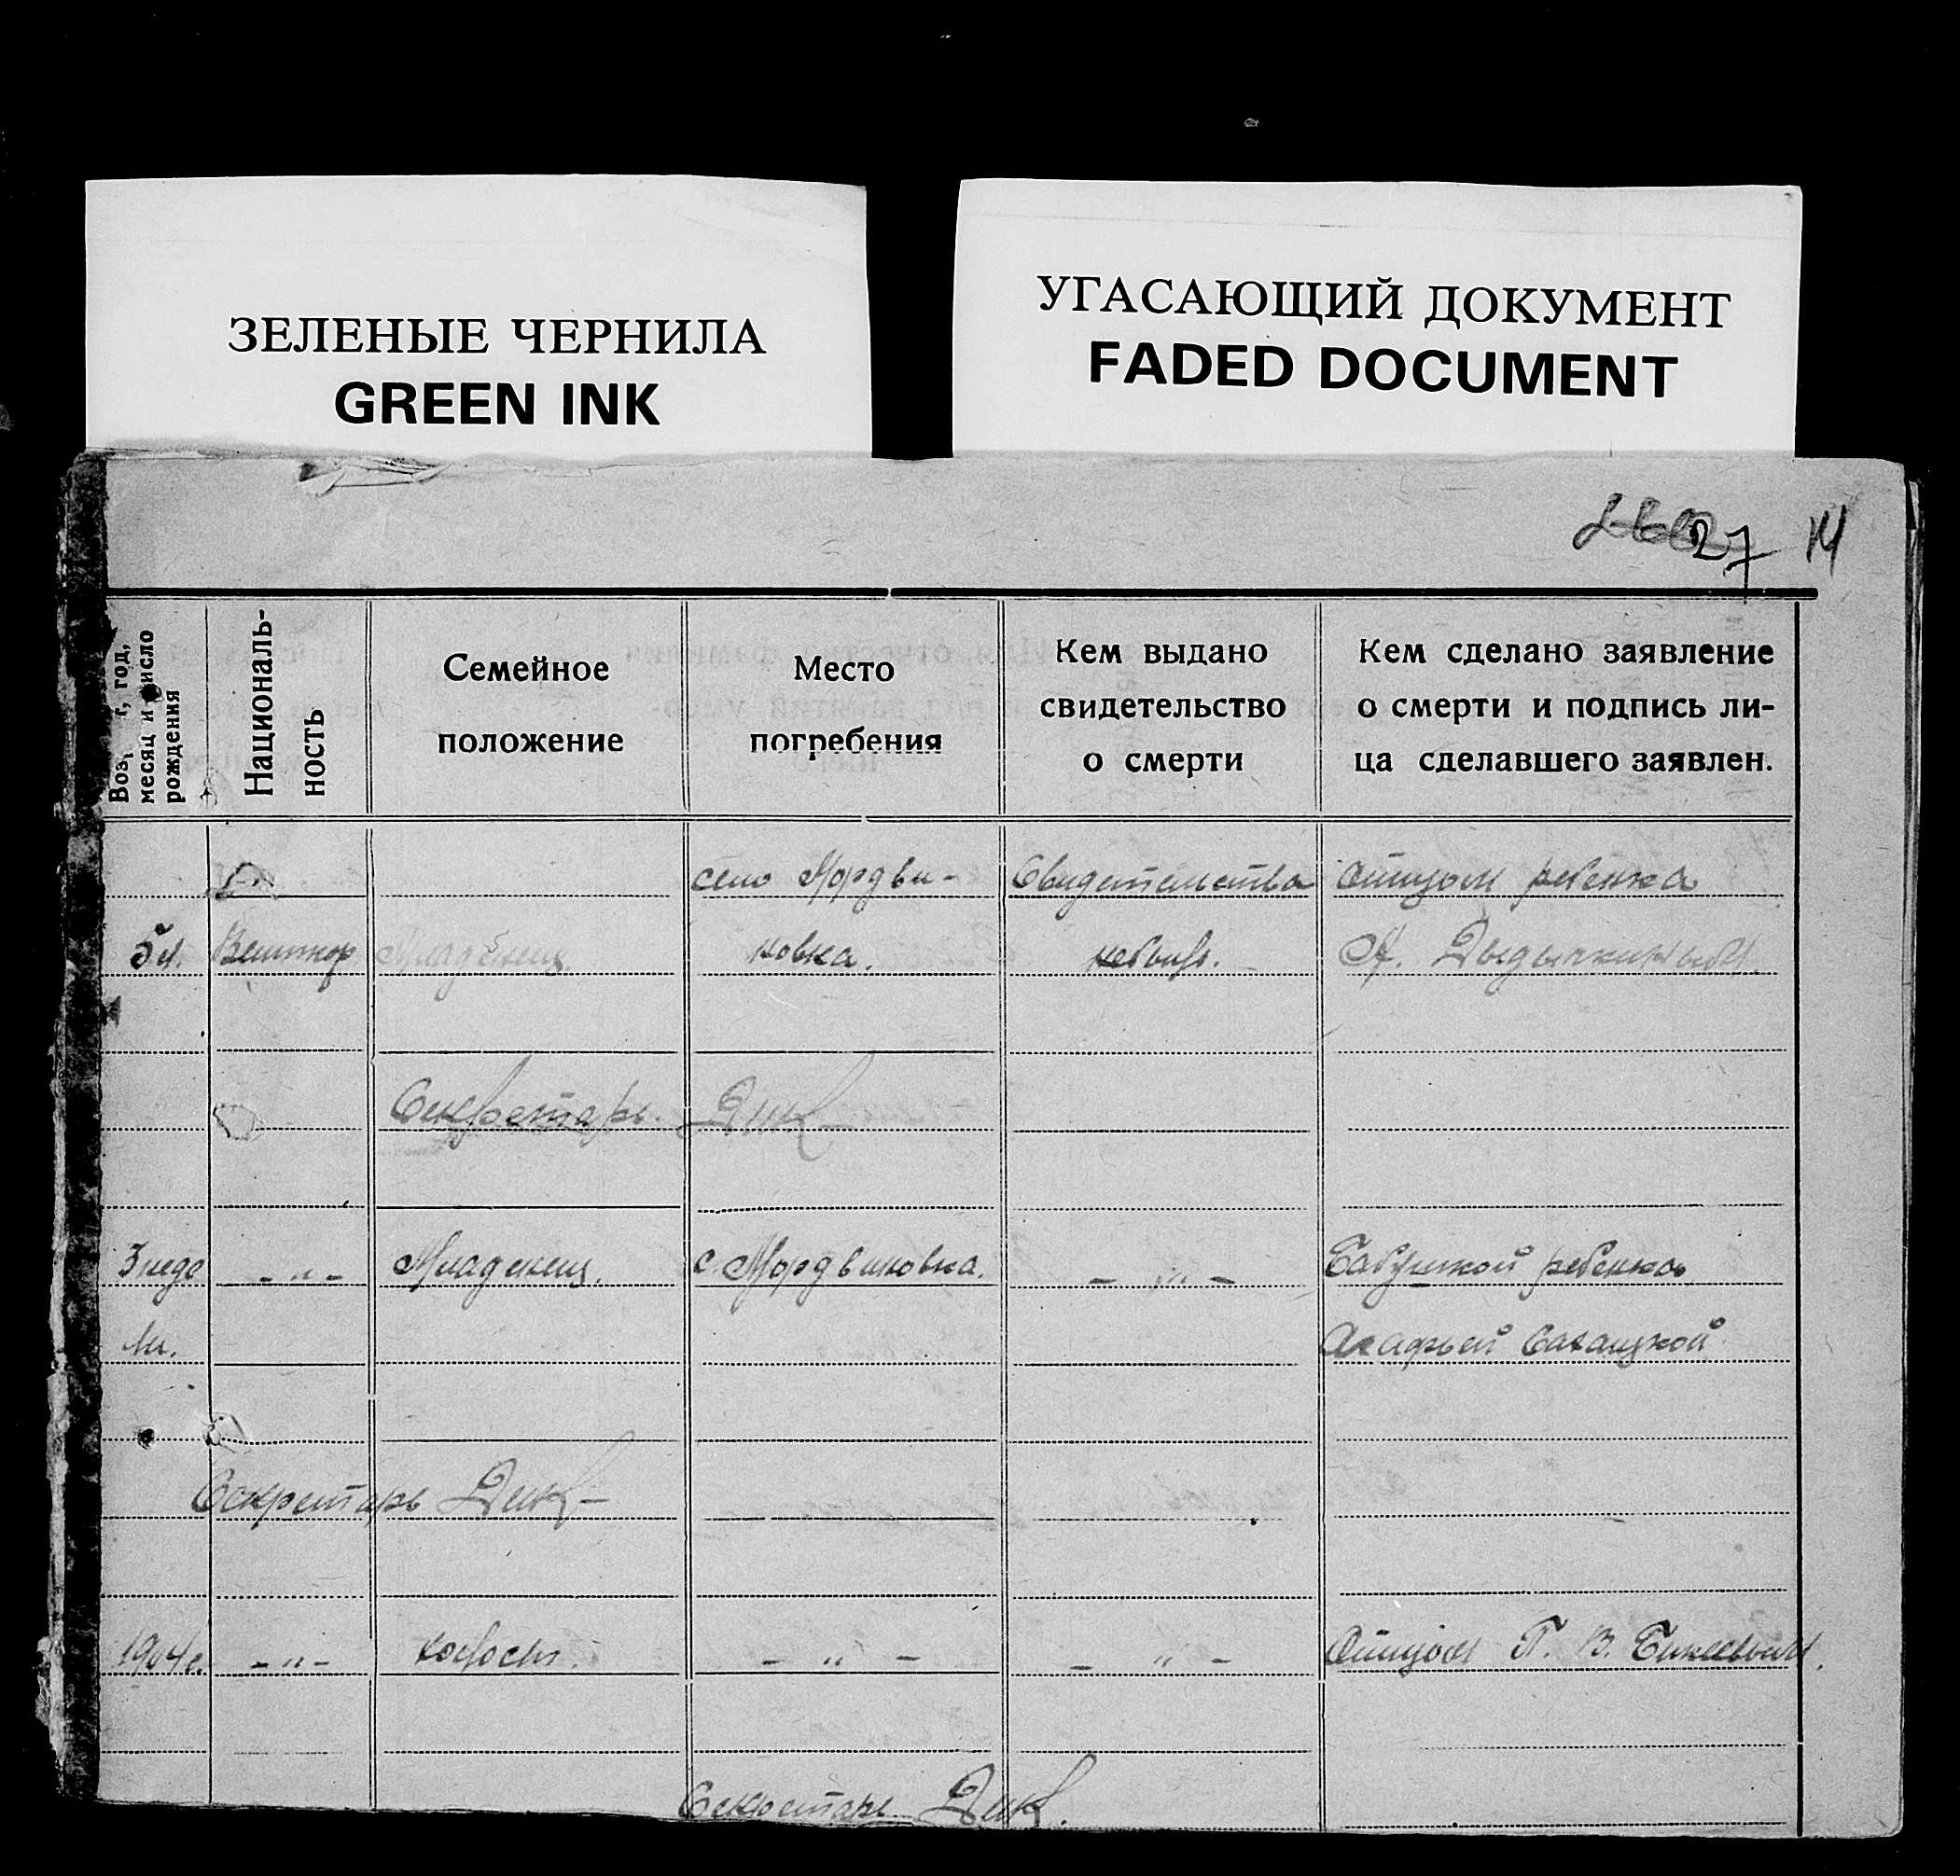 ЗЕЛЕНЫЕ ЧЕРНИЛА
GREEN INK
УГАСАЮЩИЙ ДОКУМЕНТ
FADED DOCUMENT
27 14
Воз г, год,
месяц и число
рождения
Националь-
ность
Семейное
положение
Место
погребения
Кем выдано
свидетельство
о смерти
Кем сделано заявление
о смерти и подпись ли-
ца сделавшего заявлен.
село Мордви- Свидетельства отцом ребенка
Младенец новка. А.
Секретарь Дик
3 неде -"- Младенец. с. Мордвиновка. -"- Бабушкой ребенка
ли. Агафьей
Секретарь Дик
1904 г. -"- холост. -"- -"- Отцом П. В.
Секретарь Дик.